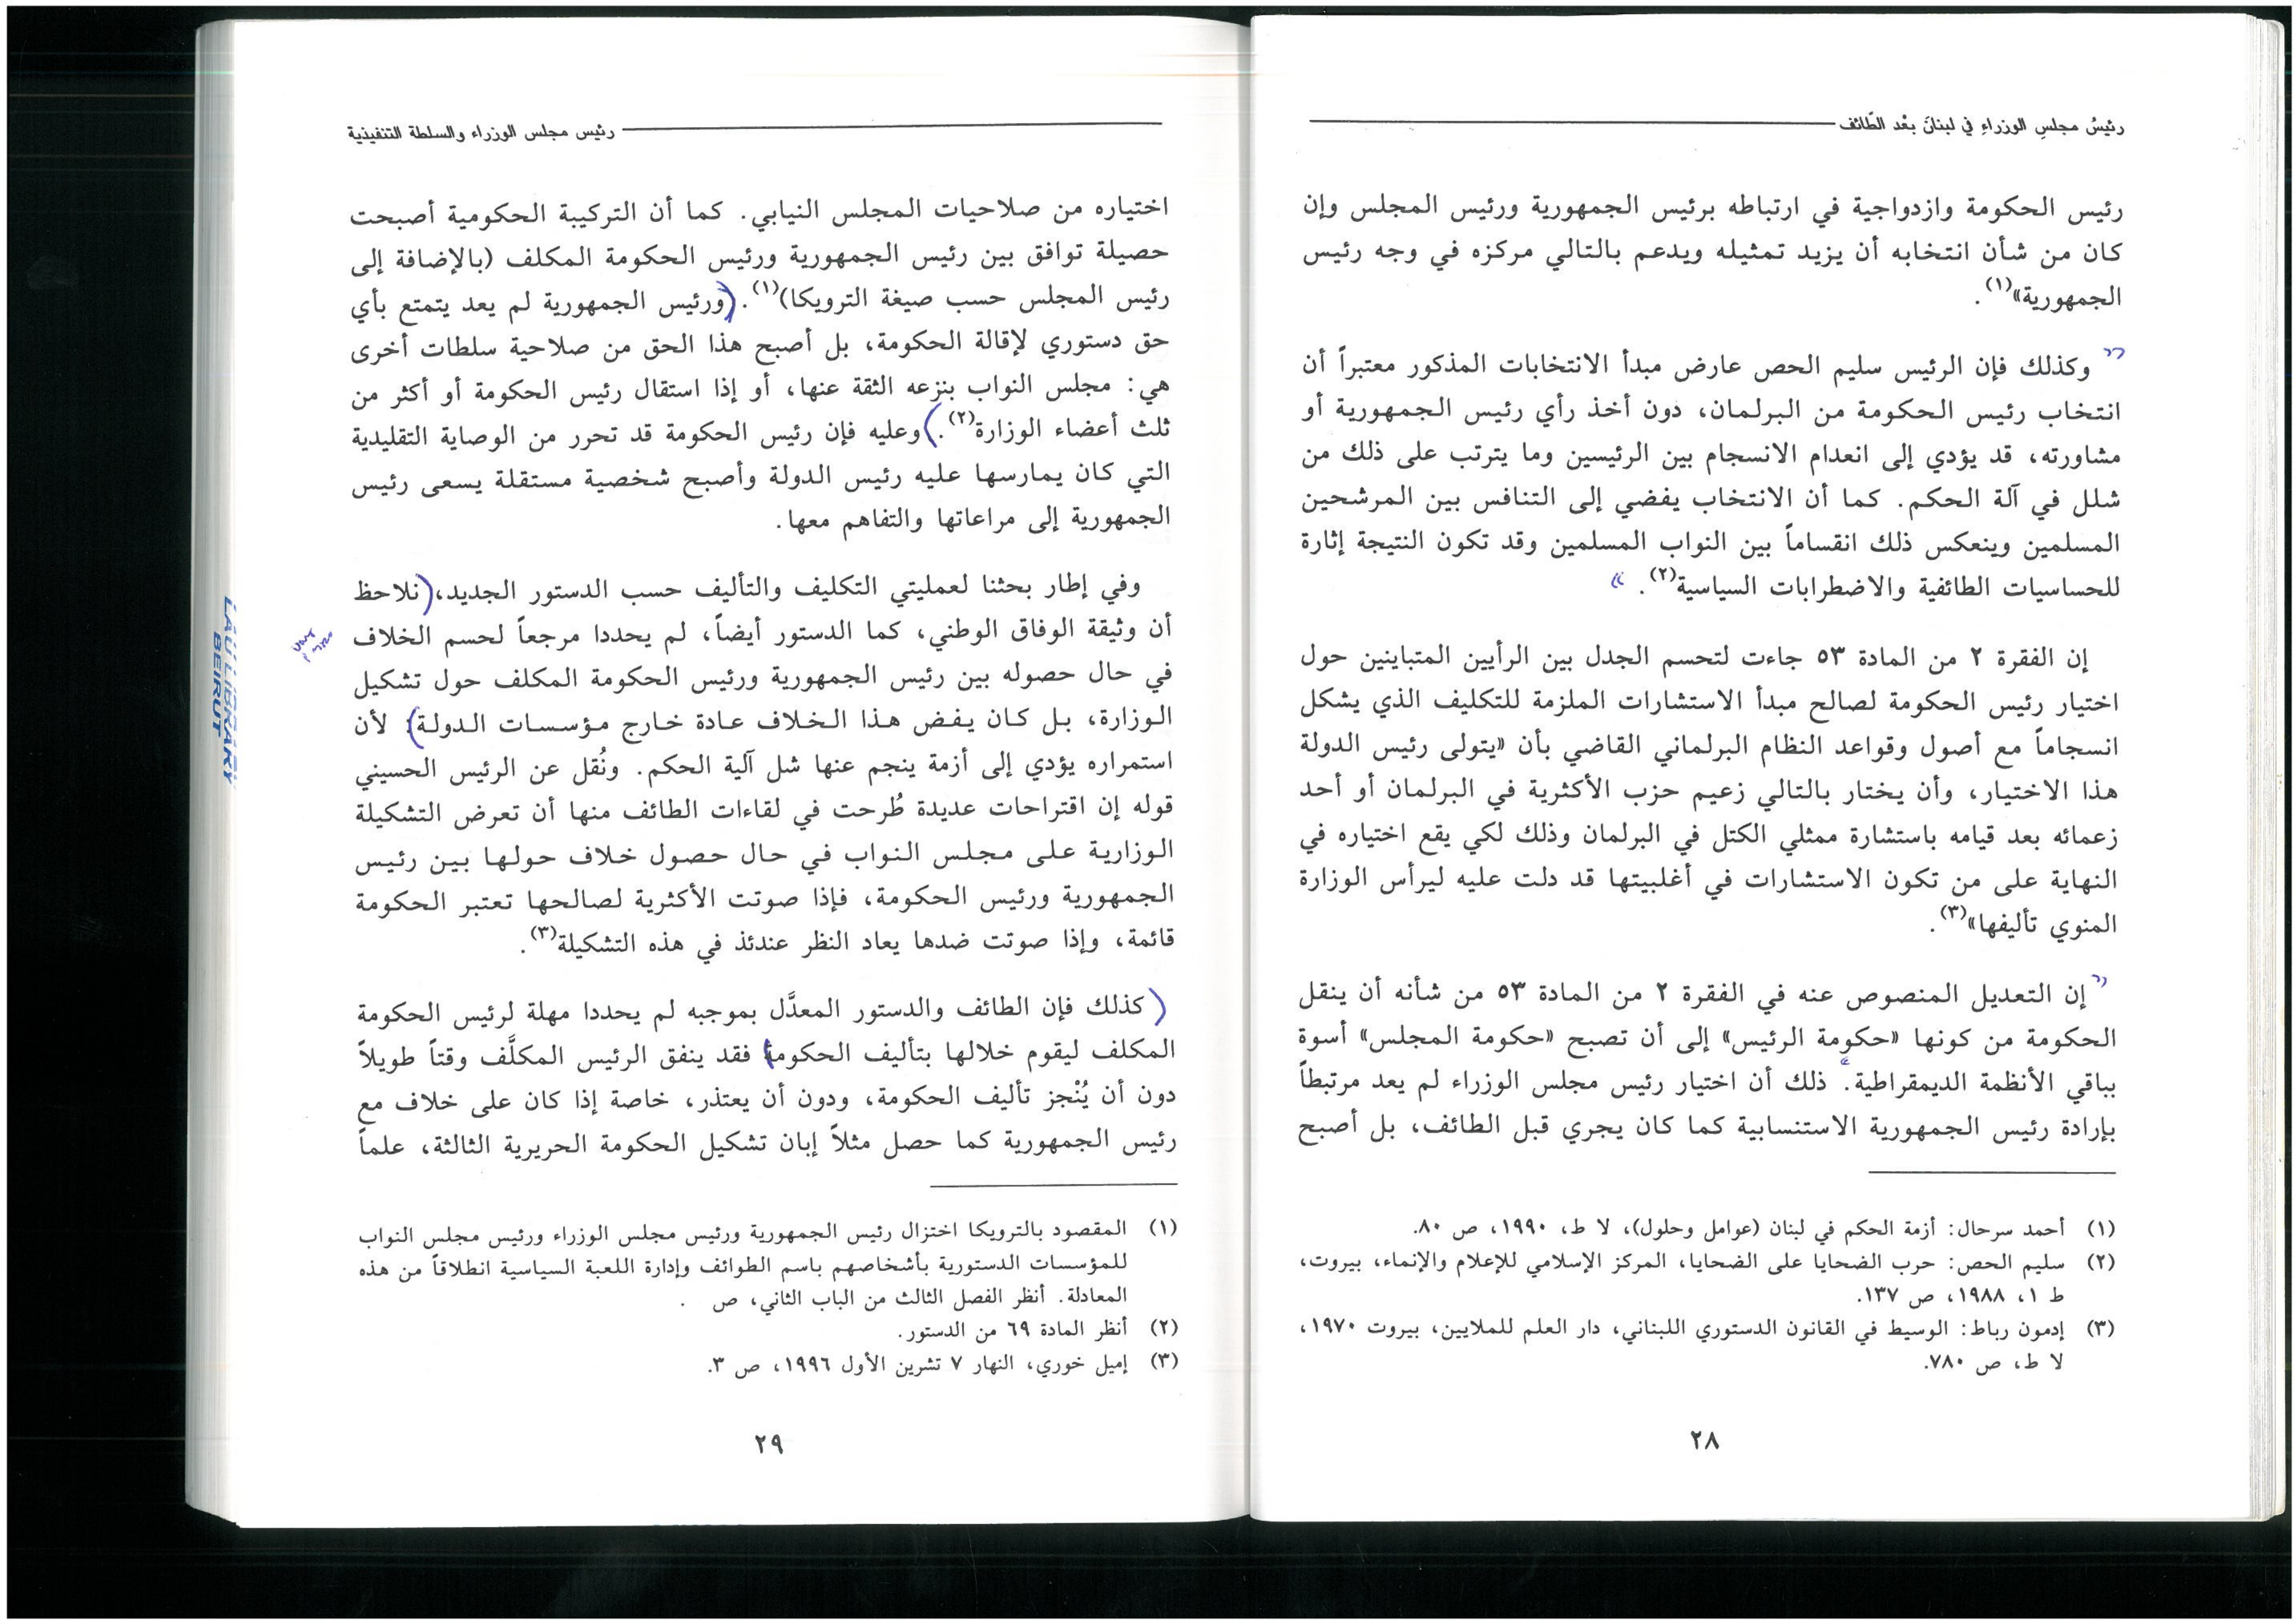 رئيسُ مجلسِ الوزراءِ في لبنانَ بعْد الطّائف
رئيس الحكومة وازدواجية في ارتباطه برئيس الجمهورية ورئيس المجلس وإن
كان من شأن انتخابه أن يزيد تمثيله ويدعم بالتالي مركزه في وجه رئيس
الجمهورية»(١).
وكذلك فإن الرئيس سليم الحص عارض مبدأ الانتخابات المذكور معتبراً أن
انتخاب رئيس الحكومة من البرلمان، دون أخذ رأي رئيس الجمهورية أو
مشاورته، قد يؤدي إلى انعدام الانسجام بين الرئيسين وما يترتب على ذلك من
شلل في آلة الحكم. كما أن الانتخاب يفضي إلى التنافس بين المرشحين
المسلمين وينعكس ذلك انقساماً بين النواب المسلمين وقد تكون النتيجة إثارة
للحساسيات الطائفية والاضطرابات السياسية(٢).
إن الفقرة ٢ من المادة ٥٣ جاءت لتحسم الجدل بين الرأيين المتباينين حول
اختيار رئيس الحكومة لصالح مبدأ الاستشارات الملزمة للتكليف الذي يشكل
انسجاماً مع أصول وقواعد النظام البرلماني القاضي بأن «يتولى رئيس الدولة
هذا الاختيار، وأن يختار بالتالي زعيم حزب الأكثرية في البرلمان أو أحد
زعمائه بعد قيامه باستشارة ممثلي الكتل في البرلمان وذلك لكي يقع اختياره في
النهاية على من تكون الاستشارات في أغلبيتها قد دلت عليه ليرأس الوزارة
المنوي تأليفها»(٣).
إن التعديل المنصوص عنه في الفقرة ٢ من المادة ٥٣ من شأنه أن ينقل
الحكومة من كونها «حكومة الرئيس» إلى أن تصبح «حكومة المجلس» أسوة
بباقي الأنظمة الديمقراطية. ذلك أن اختيار رئيس مجلس الوزراء لم يعد مرتبطاً
بإرادة رئيس الجمهورية الاستنسابية كما كان يجري قبل الطائف، بل أصبح
(١) أحمد سرحال: أزمة الحكم في لبنان (عوامل وحلول)، لا ط، ١٩٩٠، ص ٨٠.
(٢) سليم الحص: حرب الضحايا على الضحايا، المركز الإسلامي للإعلام والإنماء، بيروت،
ط ١، ١٩٨٨، ص ١٣٧.
(٣) إدمون رباط: الوسيط في القانون الدستوري اللبناني، دار العلم للملايين، بيروت ١٩٧٠،
لا ط، ص ٧٨٠.
٢٨
رئيس مجلس الوزراء والسلطة التنفيذية
اختياره من صلاحيات المجلس النيابي. كما أن التركيبة الحكومية أصبحت
حصيلة توافق بين رئيس الجمهورية ورئيس الحكومة المكلف (بالإضافة إلى
رئيس المجلس حسب صيغة الترويكا)(١). ورئيس الجمهورية لم يعد يتمتع بأي
حق دستوري لإقالة الحكومة، بل أصبح هذا الحق من صلاحية سلطات أخرى
هي: مجلس النواب بنزعه الثقة عنها، أو إذا استقال رئيس الحكومة أو أكثر من
ثلث أعضاء الوزارة(٢). وعليه فإن رئيس الحكومة قد تحرر من الوصاية التقليدية
التي كان يمارسها عليه رئيس الدولة وأصبح شخصية مستقلة يسعى رئيس
الجمهورية إلى مراعاتها والتفاهم معها.
وفي إطار بحثنا لعمليتي التكليف والتأليف حسب الدستور الجديد، نلاحظ
أن وثيقة الوفاق الوطني، كما الدستور أيضاً، لم يحددا مرجعاً لحسم الخلاف
في حال حصوله بين رئيس الجمهورية ورئيس الحكومة المكلف حول تشكيل
الوزارة، بل كان يفض هذا الخلاف عادة خارج مؤسسات الدولة لأن
استمراره يؤدي إلى أزمة ينجم عنها شل آلية الحكم. ونُقل عن الرئيس الحسيني
قوله إن اقتراحات عديدة طُرحت في لقاءات الطائف منها أن تعرض التشكيلة
الوزارية على مجلس النواب في حال حصول خلاف حولها بين رئيس
الجمهورية ورئيس الحكومة، فإذا صوتت الأكثرية لصالحها تعتبر الحكومة
قائمة، وإذا صوتت ضدها يعاد النظر عندئذ في هذه التشكيلة(٣).
كذلك فإن الطائف والدستور المعدَّل بموجبه لم يحددا مهلة لرئيس الحكومة
المكلف ليقوم خلالها بتأليف الحكومة فقد ينفق الرئيس المكلَّف وقتاً طويلاً
دون أن يُنْجز تأليف الحكومة، ودون أن يعتذر، خاصة إذا كان على خلاف مع
رئيس الجمهورية كما حصل مثلاً إبان تشكيل الحكومة الحريرية الثالثة، علماً
(١) المقصود بالترويكا اختزال رئيس الجمهورية ورئيس مجلس الوزراء ورئيس مجلس النواب
للمؤسسات الدستورية بأشخاصهم باسم الطوائف وإدارة اللعبة السياسية انطلاقاً من هذه
المعادلة. أنظر الفصل الثالث من الباب الثاني، ص .
(٢) أنظر المادة ٦٩ من الدستور.
(٣) إميل خوري، النهار ٧ تشرين الأول ١٩٩٦، ص ٣.
٢٩
LAU LIBRARY
BEIRUT